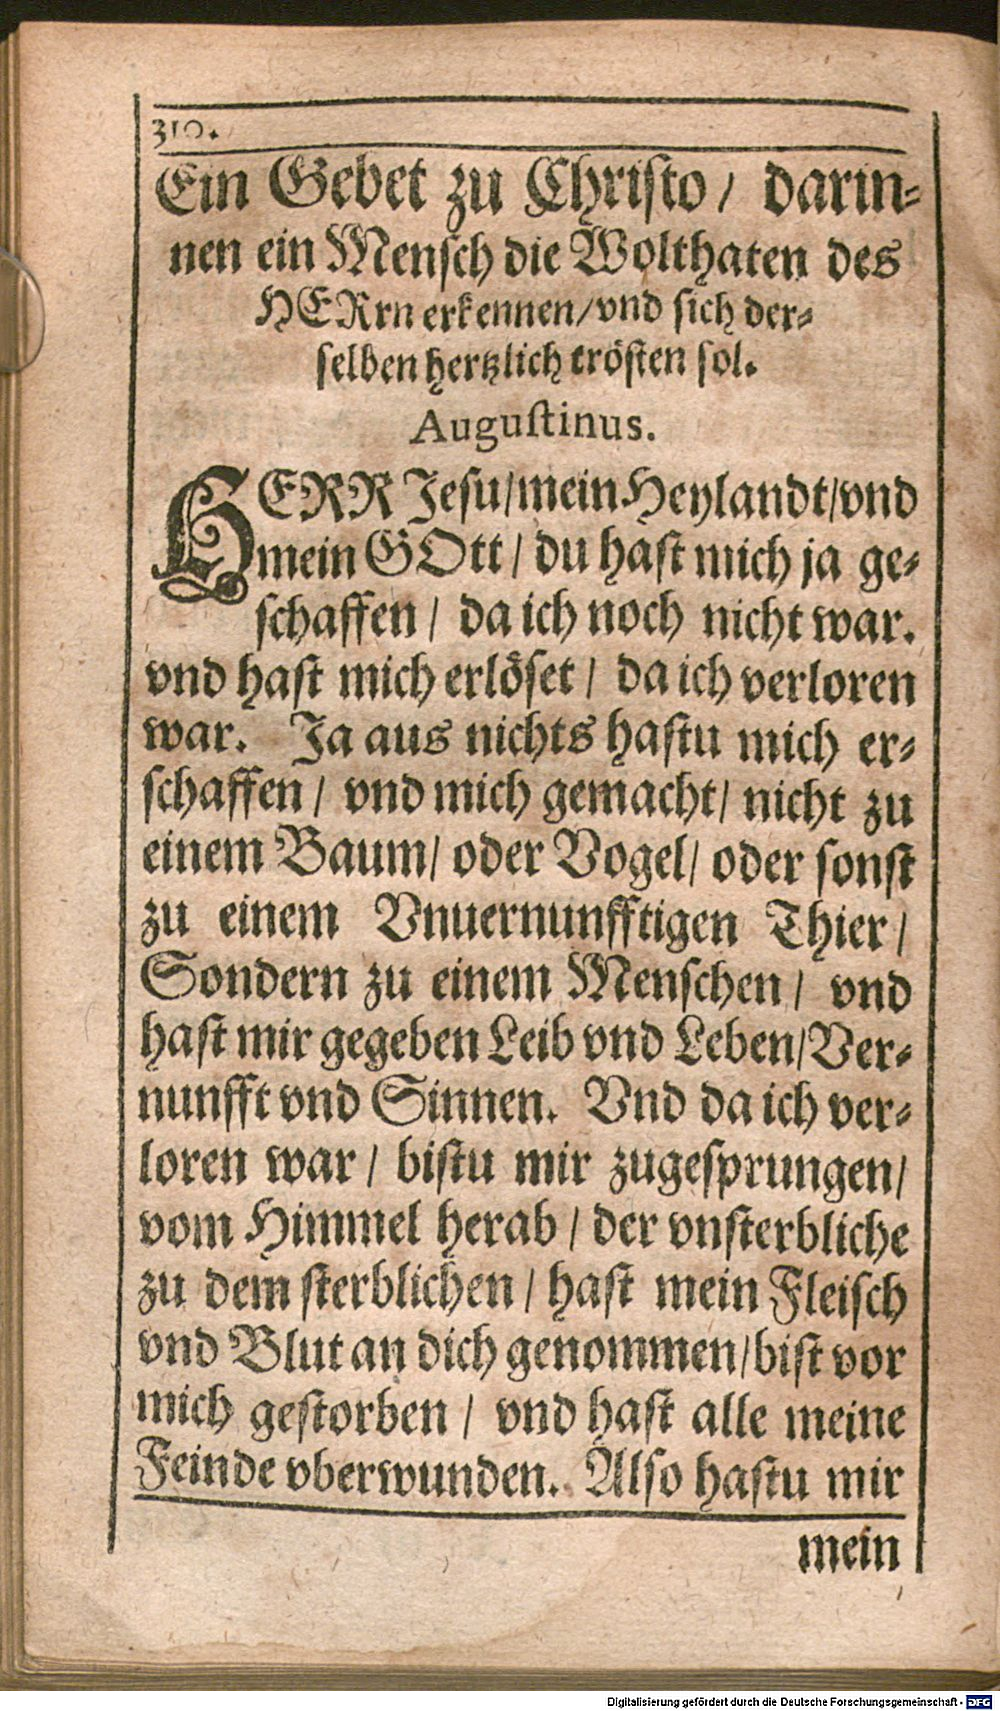 310.
Ein Gebet zu Christo/ darin-
nen ein Mensch die Wolthaten des
HERrn erkennen/vnd sich der-
selben hertzlich trösten sol.
Augustinus.
HERR Jesu/mein Heylandt/vnd
mein GOtt/ du hast mich ja ge-
schaffen/ da ich noch nicht war.
vnd hast mich erlöset/ da ich verloren
war. Ja aus nichts hastu mich er-
schaffen/ vnd mich gemacht/ nicht zu
einem Baum/ oder Vogel/ oder sonst
zu einem Vnuernunfftigen Thier/
Sondern zu einem Menschen/ vnd
hast mir gegeben Leib vnd Leben/Ver-
nunfft vnd Sinnen. Vnd da ich ver-
loren war/ bistu mir zugesprungen/
vom Himmel herab/ der vnsterbliche
zu dem sterblichen/ hast mein Fleisch
vnd Blut an dich genommen/bist vor
mich gestorben/ vnd hast alle meine
Feinde vberwunden. Also hastu mir
mein
Digitalisierung gefördert durch die Deutsche Forschungsgemeinschaft - DFG